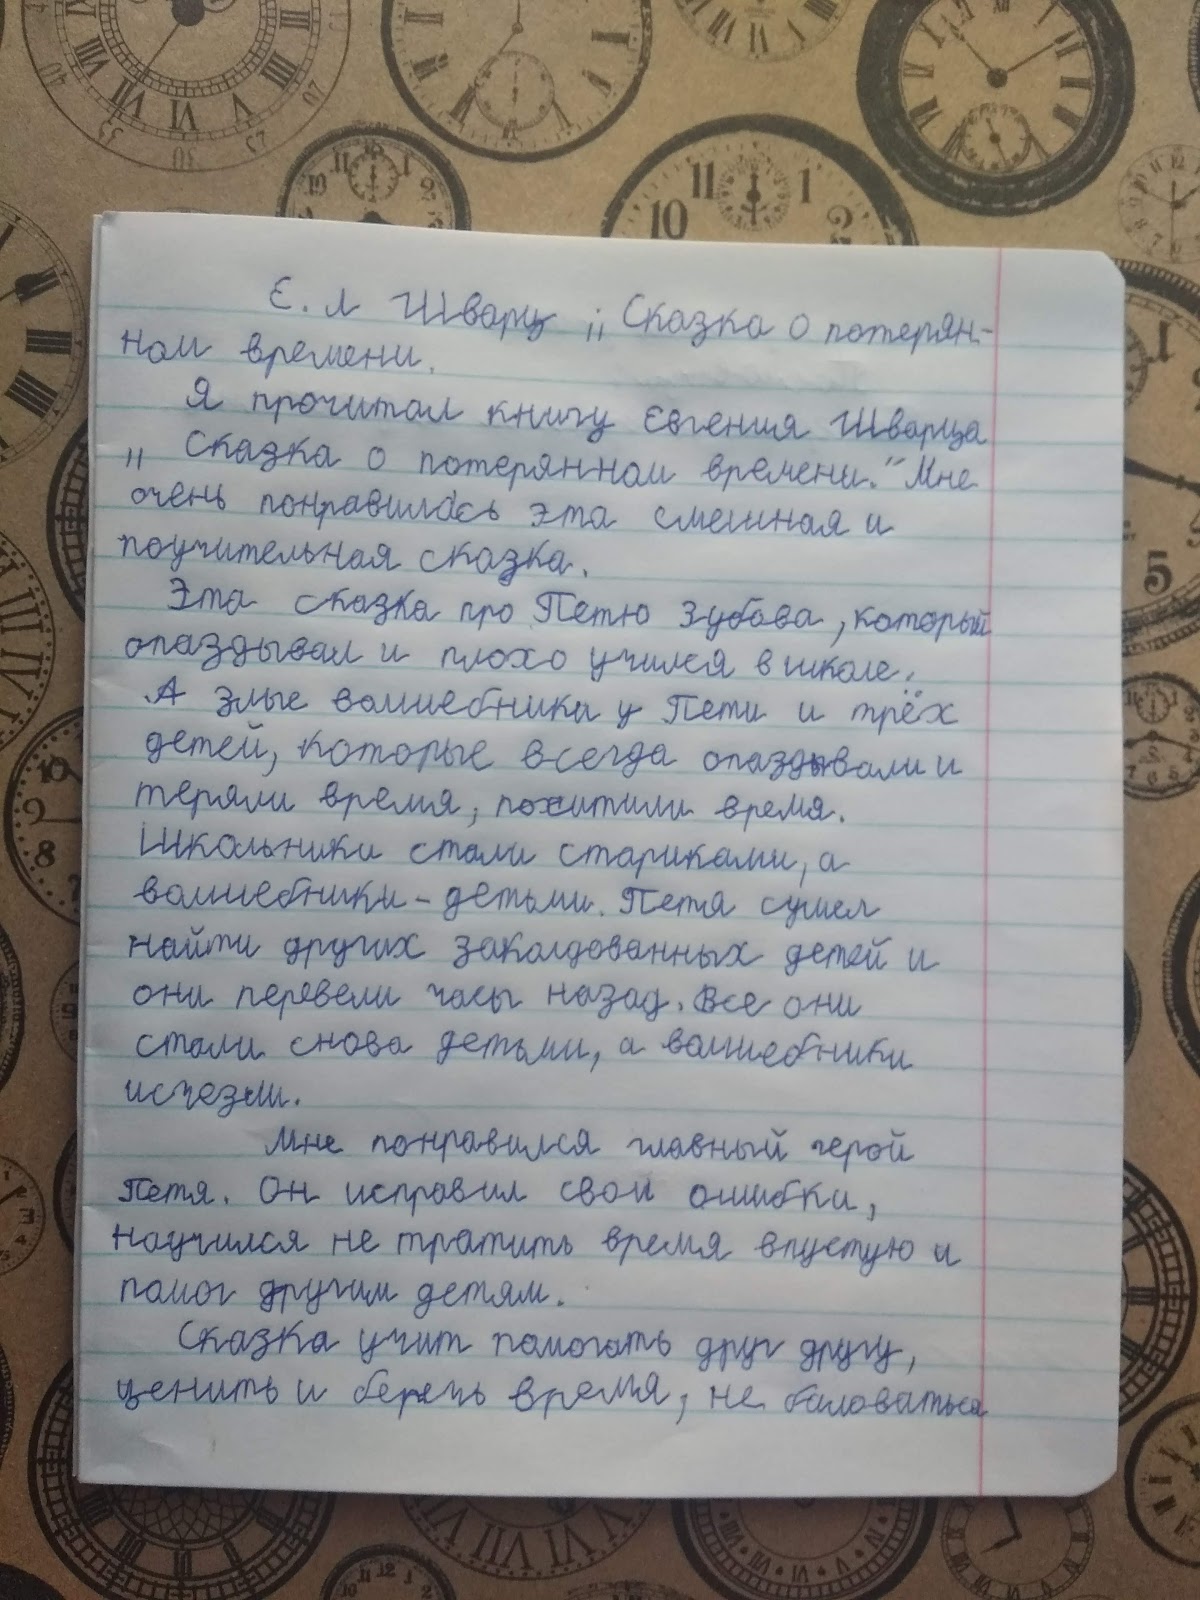 Е. Л Шварц „ Сказка о потерян-
ном времени.
Я прочитал книгу Евгения Шварца
„ Сказка о потерянном времени.“ Мне
очень понравилась эта смешная и
поучительная сказка.
Эта сказка про Петю Зубова, который
опаздывал и плохо учился в школе.
А злые волшебники у Пети и трёх
детей, которые всегда опаздывали и
теряли время, похитили время.
Школьники стали стариками, а
волшебники - детьми. Петя сумел
найти других заколдованных детей и
они перевели часы назад. Все они
стали снова детьми, а волшебники
исчезли.
Мне понравился главный герой
Петя. Он исправил свои ошибки,
научился не тратить время впустую и
помог другим детям.
Сказка учит помогать друг другу,
ценить и беречь время, не баловаться